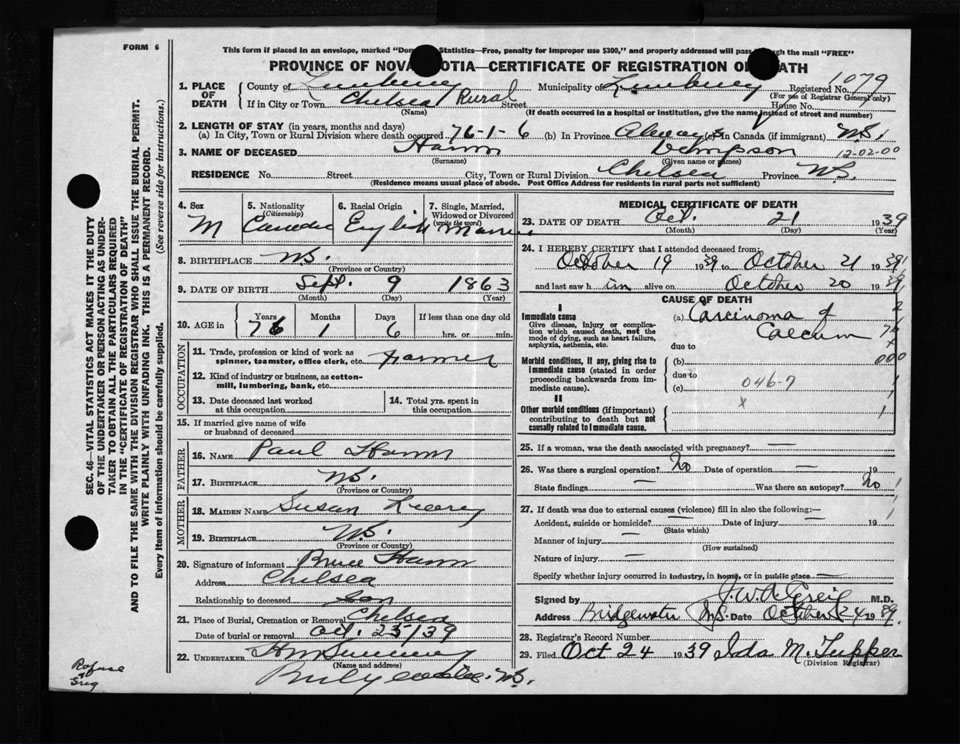 FORM 6
This form if placed in an envelope, marked "Dom Statistics—Free, penalty for improper use $300," and properly addressed will pass through the mail "FREE"
PROVINCE OF NOVA SCOTIA—CERTIFICATE OF REGISTRATION OF DEATH
1. PLACE OF DEATH
County of Lunenburg Municipality of Lunenburg Registered No. 1079
(For use of Registrar General only)
If in City or Town Chelsea Rural Street House No.
(Name) (If death occurred in a hospital or institution, give the name instead of street and number)
2. LENGTH OF STAY (in years, months and days)
(a) In City, Town or Rural Division where death occurred 76-1-6 (b) In Province Always (c) in Canada (if immigrant) N.S.
3. NAME OF DECEASED Hamm
(Surname) (Given name or names) 12-02-00
RESIDENCE No. Street City, Town or Rural Division Chelsea Province N.S.
(Residence means usual place of abode. Post Office Address for residents in rural parts not sufficient)
4. Sex
M
5. Nationality
(Citizenship)
6. Racial Origin
English
7. Single, Married, Widowed or Divorced
(write the word)
8. BIRTHPLACE N.S.
(Province or Country)
9. DATE OF BIRTH Sept. 9 1863
(Month) (Day) (Year)
10. AGE in Years Months Days If less than one day old
76 1 6 hrs. or min.
OCCUPATION
11. Trade, profession or kind of work as spinner, teamster, office clerk, etc. Farmer
12. Kind of industry or business, as cotton-mill, lumbering, bank, etc.
13. Date deceased last worked at this occupation
14. Total yrs. spent in this occupation
15. If married give name of wife or husband of deceased
FATHER
16. NAME Paul Hamm
17. BIRTHPLACE N.S.
(Province or Country)
MOTHER
18. MAIDEN NAME Susan
19. BIRTHPLACE N.S.
(Province or Country)
20. Signature of informant Bruce Hamm
Address Chelsea
Relationship to deceased Son
21. Place of Burial, Cremation or Removal Chelsea
Date of burial or removal Oct. 23/39
22. UNDERTAKER
(Name and address)
N.S.
MEDICAL CERTIFICATE OF DEATH
23. DATE OF DEATH Oct. 21 1939
(Month) (Day) (Year)
24. I HEREBY CERTIFY that I attended deceased from:
October 19 1939 to October 21 1939
and last saw him alive on October 20 1939
CAUSE OF DEATH
I
Immediate cause
Give disease, injury or complication which caused death, not the mode of dying, such as heart failure, asphyxia, asthenia, etc.
(a) Carcinoma of
Caecum
due to
Morbid conditions, if any, giving rise to immediate cause (stated in order proceeding backwards from immediate cause).
(b)
due to
(c) 046-7
II
Other morbid conditions (if important) contributing to death but not causally related to immediate cause.
x
25. If a woman, was the death associated with pregnancy? —
26. Was there a surgical operation? No Date of operation — 19
State findings — Was there an autopsy? No
27. If death was due to external causes (violence) fill in also the following:—
Accident, suicide or homicide? — Date of injury — 19
(State which)
Manner of injury —
(How sustained)
Nature of injury —
Specify whether injury occurred in industry, in home, or in public place —
Signed by M.D.
Address Bridgewater N.S. Date October 24 1939
28. Registrar's Record Number
29. Filed Oct 24 1939 Ida M. Tupper
(Division Registrar)
SEC. 46—VITAL STATISTICS ACT MAKES IT THE DUTY OF THE UNDERTAKER OR PERSON ACTING AS UNDERTAKER TO OBTAIN ALL THE PARTICULARS REQUIRED IN THE "CERTIFICATE OF REGISTRATION OF DEATH" AND TO FILE THE SAME WITH THE DIVISION REGISTRAR WHO SHALL ISSUE THE BURIAL PERMIT.
WRITE PLAINLY WITH UNFADING INK. THIS IS A PERMANENT RECORD.
Every item of information should be carefully supplied. (See reverse side for instructions.)